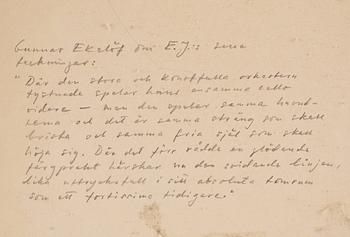 Gunnar Ekelöf om E.J:s sena
teckningar:
"Där den stora och konstfulla orkestern
tystnade spelar hans ensamma cello
vidare – men den spelar samma
och det är samma sträng som skall
brista och samma fria själ som skall
höja sig. Där det förr rådde en glödande
färgprakt härskar nu den svidande linjen,
lika uttrycksfull i sitt absoluta tomrum
som ett fortissimo tidigare."